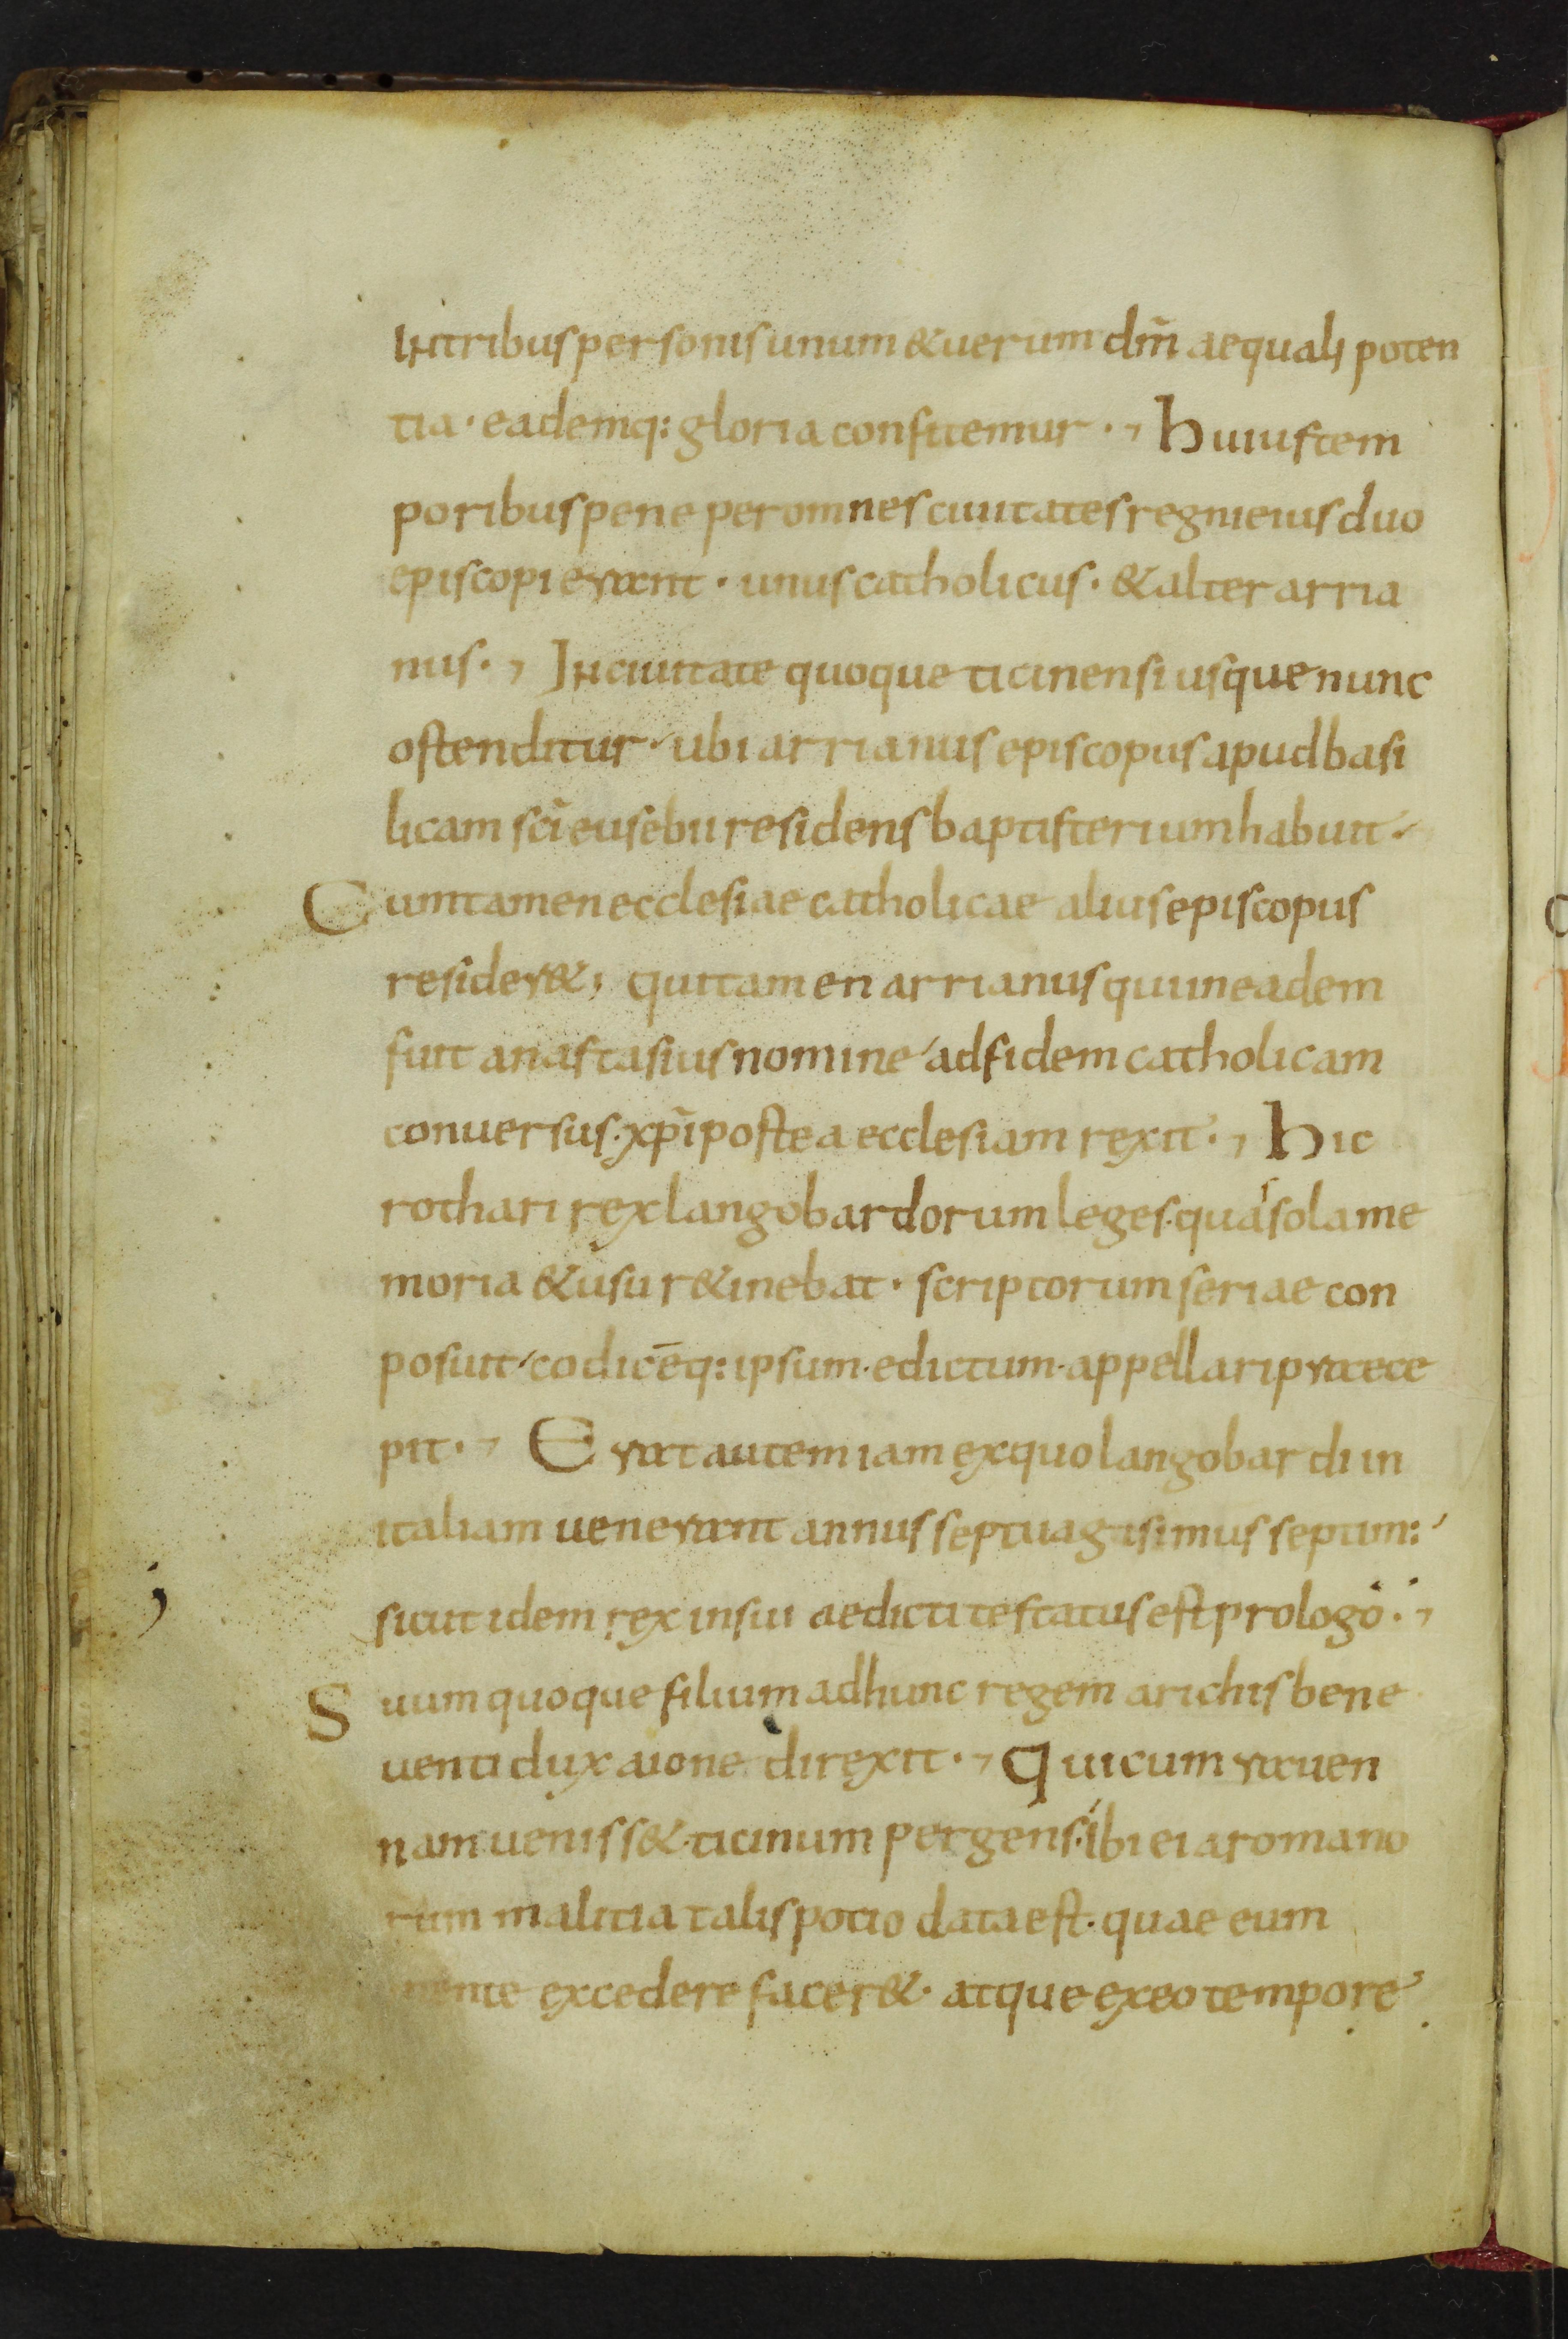 In tribus personis unum & uerum dm̄ aequali poten
tia · eademq: gloria confitemur · , Huius tem
poribus pene per omnes ciuitates regni eius duo
episcopi erant · unus catholicus · & alter arria
nus · , In ciuitate quoque ticinensi usque nunc
ostenditur · ubi arrianus episcopus apud basi
licam sc̄i eusebii residens baptisterium habuit ·
Cum tamen ecclesiae catholicae alius episcopus
resider&, Qui tamen arrianus qui in eadem
fuit anastasius nomine ad fidem catholicam
conuersus · xp̄i postea ecclesiam rexit · , Hic
rothari rex langobardorum leges · quas sola me
moria & usu r&inebat · scriptorum seriae con
posuit codicēq: ipsum · edictum · appellari praece
pit · , Erat autem iam ex quo langobardi in
italiam uenerant annus septuagisimus septim:
sicut idem rex in sui aedicti testatus est prologo · ,
Suum quoque filium ad hunc regem arichis bene
uenti dux aione direxit · , Qui cum rauen
nam ueniss& · ticinum pergens · ibi ei a romano
rum malitia talis potio data est · quae eum
mente excedere facer& · atque ex eo tempore